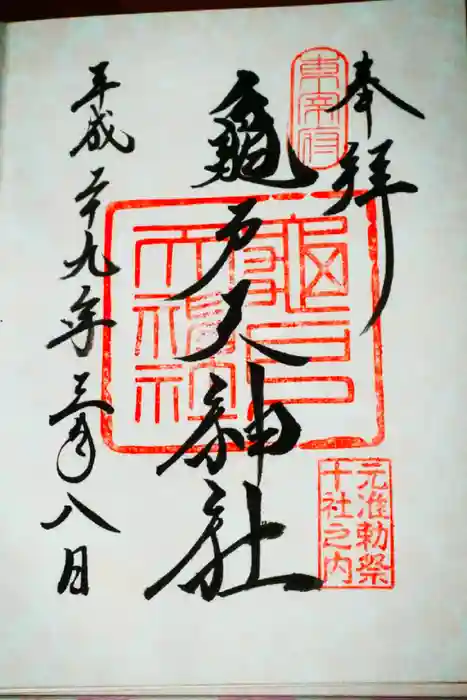 奉拝
東宰府
龜戸天神社
元准勅祭
十社之内
平成二十九年三月八日